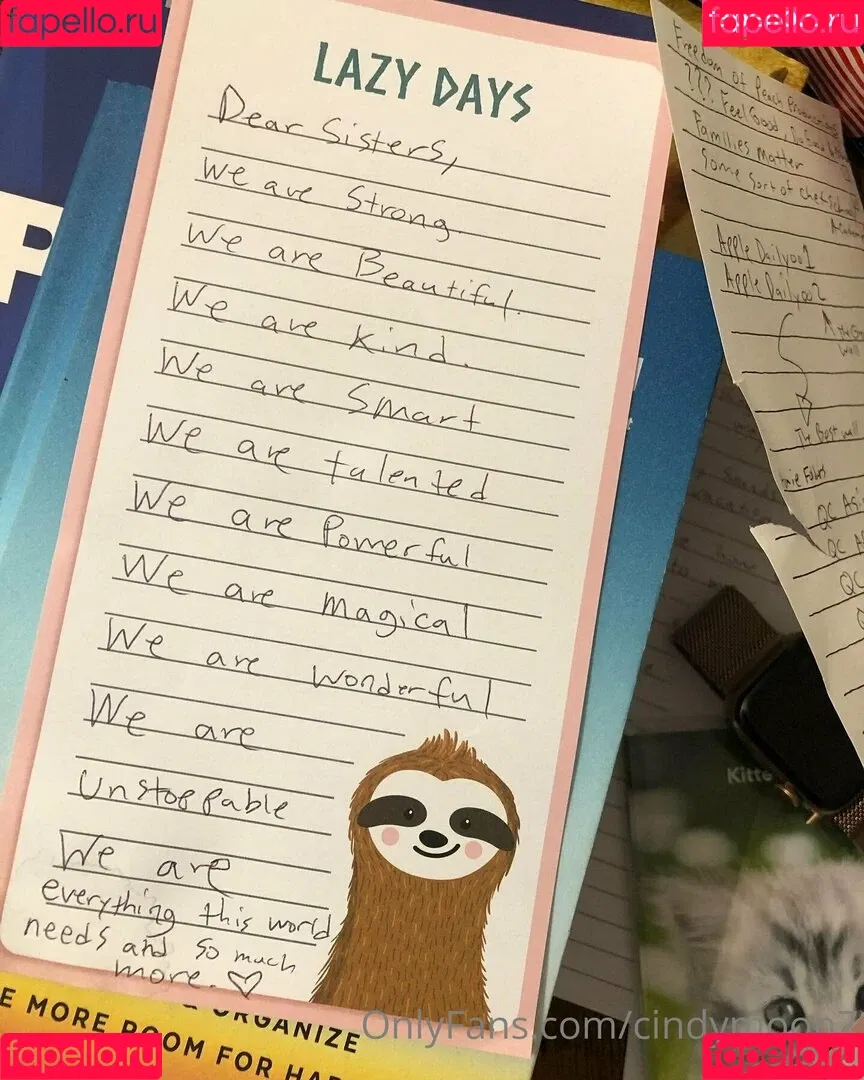 fapello.ru
fapello.ru
LAZY DAYS
Dear Sisters,
We are Strong
We are Beautiful.
We are kind.
We are Smart
We are talented
We are Powerful
We are magical
We are wonderful
We are
unstoppable
We are
everything this world
needs and so much
more. ♡
Freedom of
??? Feel Good, Do Good
Families Matter
Some sort of
Apple Daily001
Apple Daily002
The Best wall
QC Asi
QC
QC
Kitte
P
E MORE ROOM FOR HA
& ORGANIZE
OnlyFans.com/cindymoon
fapello.ru
fapello.ru